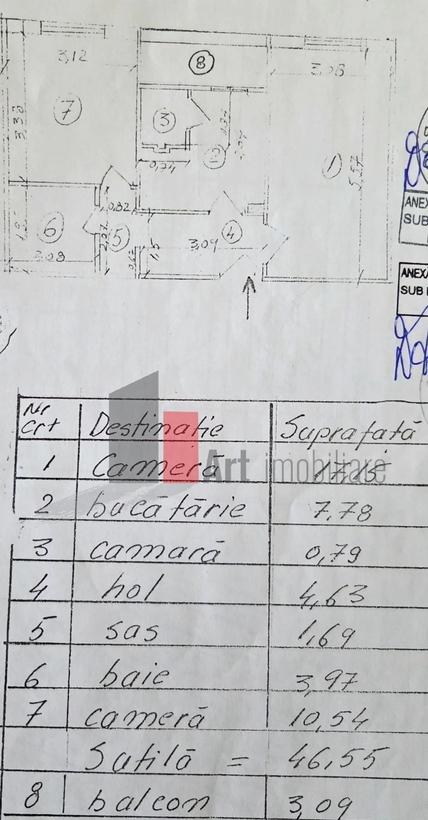 3,12
8
3,08
7
3,38
3
2
1
5,57
0,74
0,82
6
5
4
3,09
1,5
2,08
ANEX
SUB
ANEXA
SUB
Nr Crt Destinație Suprafață
1 Cameră 17,15
2 bucătărie 7,78
3 camară 0,79
4 hol 4,63
5 sas 1,69
6 baie 3,97
7 cameră 10,54
Sutilă = 46,55
8 balcon 3,09
Art imobiliare